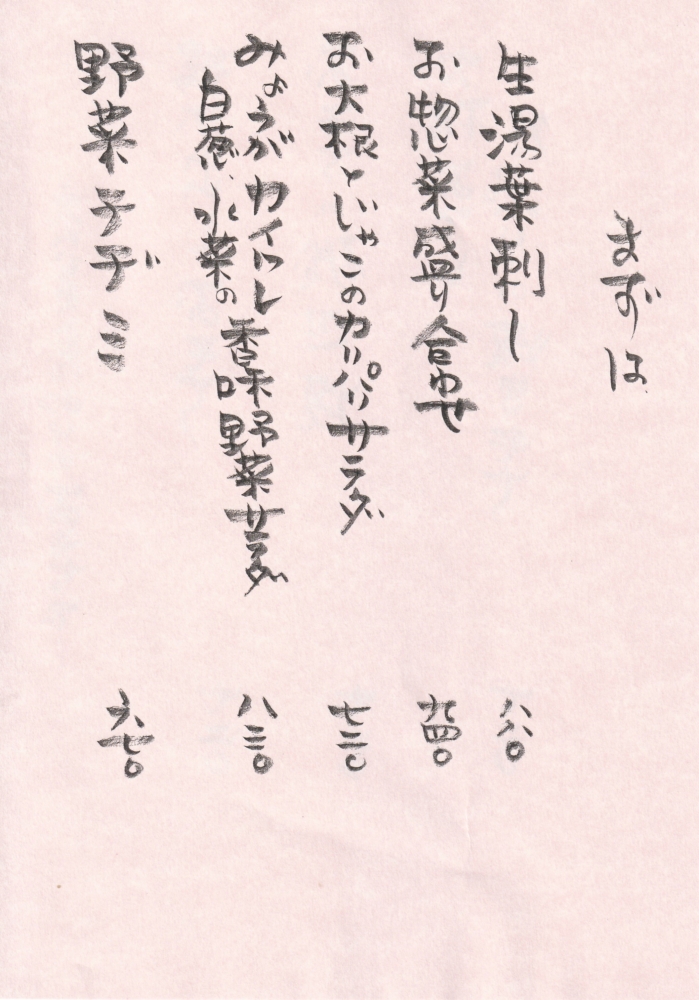 まずは
生湯葉刺し 八八〇
お惣菜盛り合わせ 九四〇
お大根とじゃこのカリパリサラダ 七三〇
みょうがカイワレ
白葱、水菜の香味野菜サラダ 八三〇
野菜チヂミ 六七〇